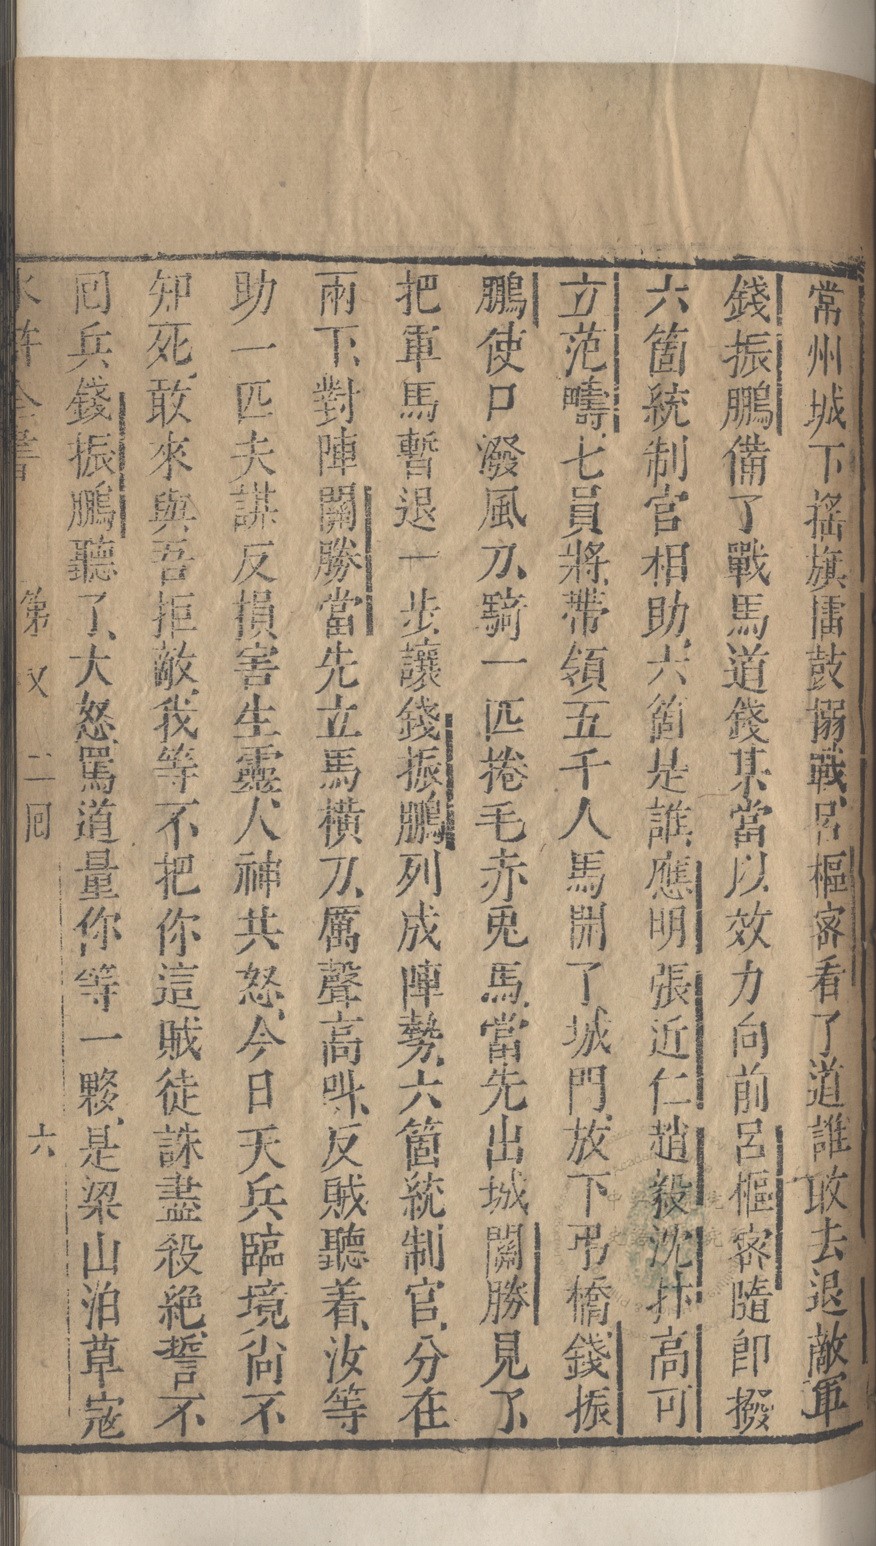 常州城下搖旗擂鼓搦戰呂樞密看了道誰敢去退敵軍
錢振鵬備了戰馬道錢某當以效力向前呂樞密隨卽撥
六箇統制官相助六箇是誰應明張近仁趙毅沈抃高可
立范疇七員將帶領五千人馬開了城門放下弔橋錢振
鵬使口潑風刀騎一匹捲毛赤兎馬當先出城關勝見了
把軍馬暫退一步讓錢振鵬列成陣勢六箇統制官分在
兩下對陣關勝當先立馬橫刀厲聲高叫反賊聽着汝等
助一匹夫謀反損害生靈人神共怒今日天兵臨境尙不
知死敢來與吾拒敵我等不把你這賊徒誅盡殺絕誓不
回兵錢振鵬聽了大怒罵道量你等一夥是梁山泊草寇
水滸全書 第 二回 六